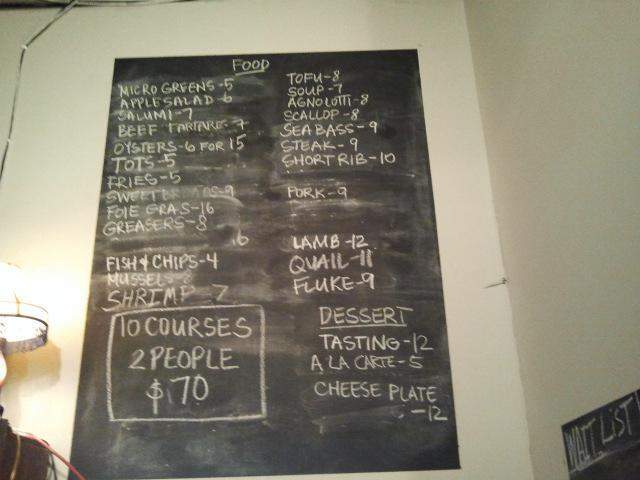 FOOD
MICRO GREENS-5
APPLE SALAD-6
SALUMI-7
BEEF TARTARE-7
OYSTERS-6 FOR 15
TOTS-5
FRIES-5
FOIE GRAS-16
GREASERS-8
16
FISH & CHIPS-4
MUSSELS
SHRIMP-7
10 COURSES
2 PEOPLE
$170
TOFU-8
SOUP-7
AGNOLOTTI-8
SCALLOP-8
SEA BASS-9
STEAK-9
SHORT RIB-10
PORK-9
LAMB-12
QUAIL-11
FLUKE-9
DESSERT
TASTING-12
A LA CARTE-5
CHEESE PLATE
-12
WAIT LIST